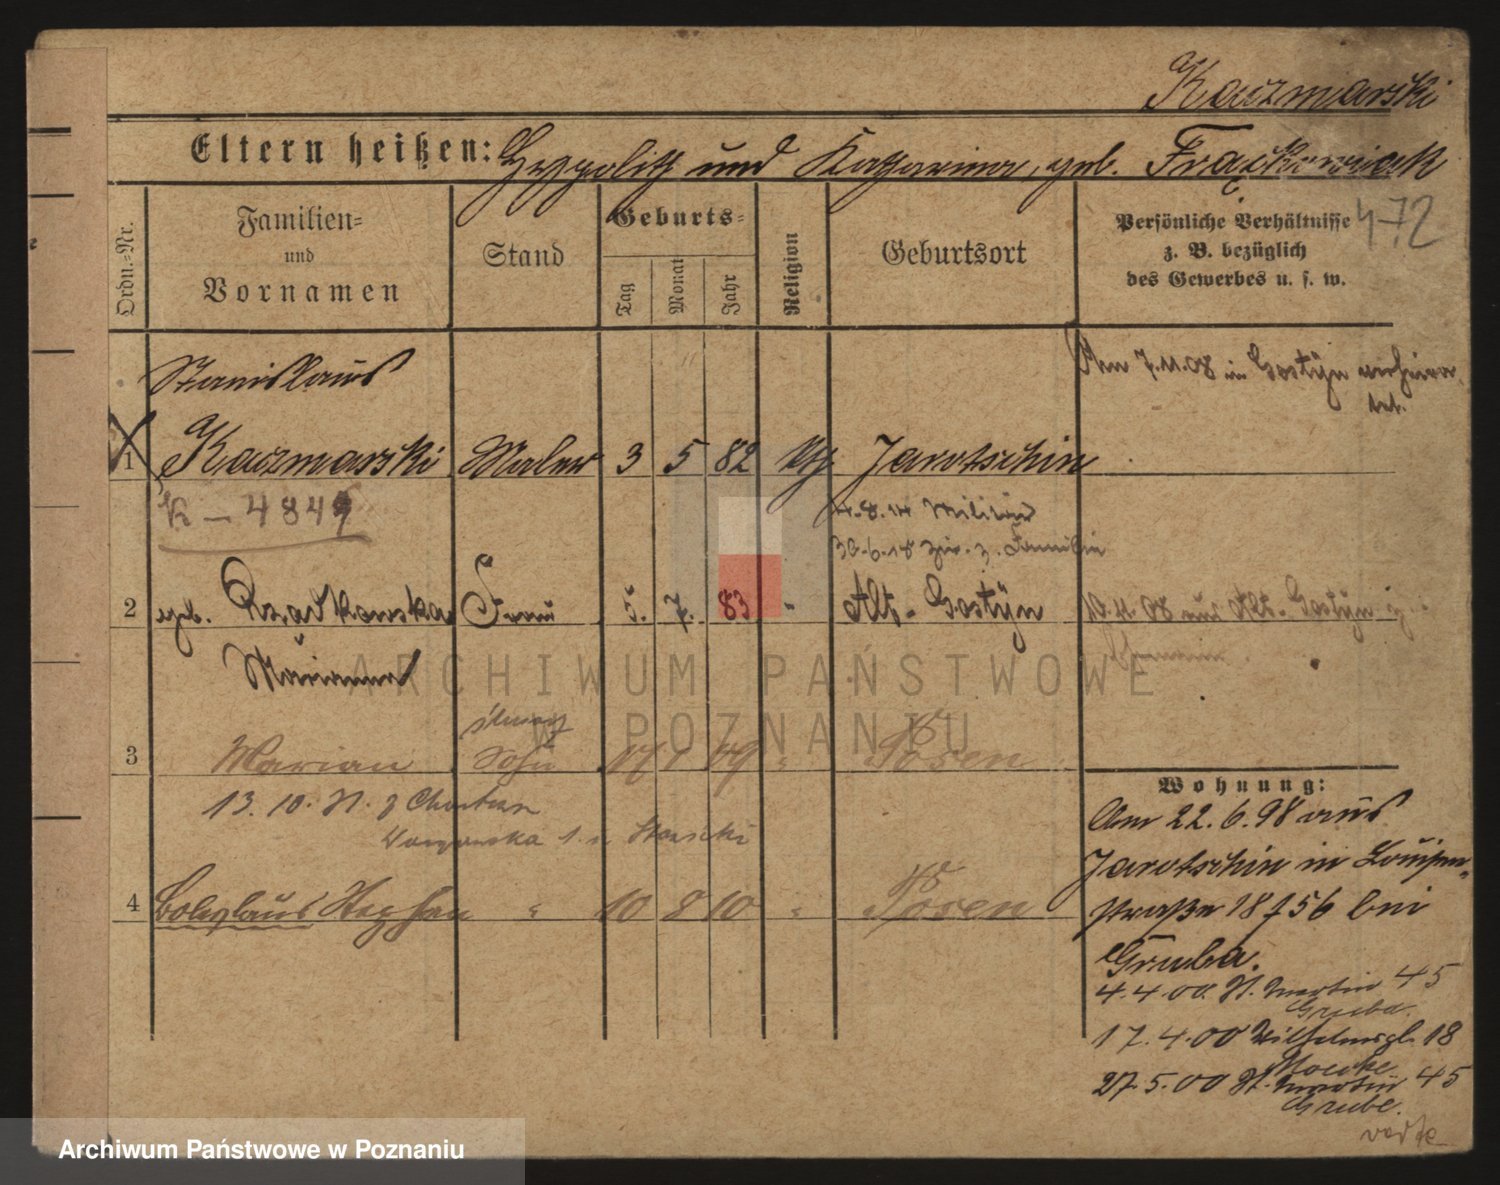 Kaczmarski
Eltern heißen: Hyppolith und Katharina, geb. Frąckowiak
472
Ordn.=Nr.
Familien=
und
Vornamen
Stand
Geburts=
Tag
Monat
Jahr
Religion
Geburtsort
Persönliche Verhältnisse
z. B. bezüglich
des Gewerbes u. s. w.
Stanislaus
Am 7.11.08 in Gostyn verheira
tet.
1 Kaczmarski Maler 3 5 82 kth Jarotschin
K – 4849
4.8.14 Militär
30.6.18 zur. z. Familie
2 geb. Rzadkowska Frau 5. 7. 83 " Alt-Gostyn 10.11.08 aus Alt-Gostyn
Marianna
3 Marian Sohn 17 1 09 " Posen
13. 10.
4 Boleslaus Stephan " 10 8 10 " Posen
Wohnung:
Am 22.6.98 aus
Jarotschin in Louisen-
straße 18 bei
Gruba.
4.4.00. St. Martin 45
Gruba.
17.4.00 Wilhelmspl. 18
27.5.00 St. Martin 45
Grube.
ARCHIWUM PAŃSTWOWE
W POZNANIU
Archiwum Państwowe w Poznaniu